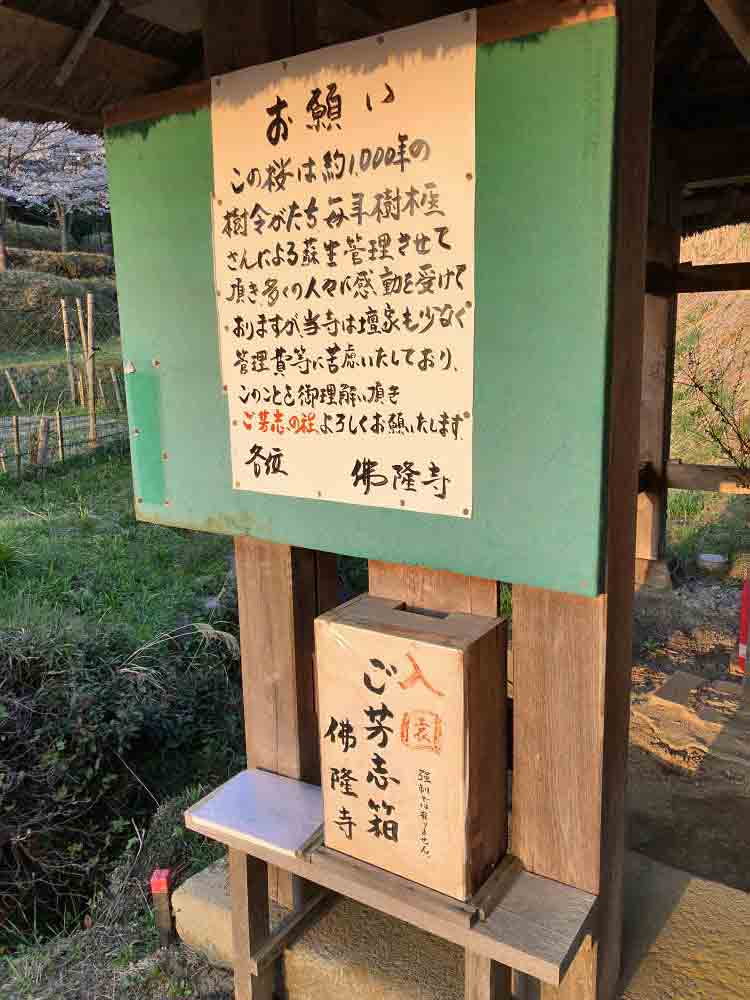 お願い
この桜は約1,000年の
樹令がたち毎年樹木医
さんによる蘇生管理させて
頂き多くの人々に感動を受けて
おりますが、当寺は壇家も少なく
管理費等に苦慮いたしており、
このことを御理解い頂き
ご芳志の程よろしくお願いいたします。
各位 佛隆寺
入
ご芳志箱
佛隆寺
強制では有りません。